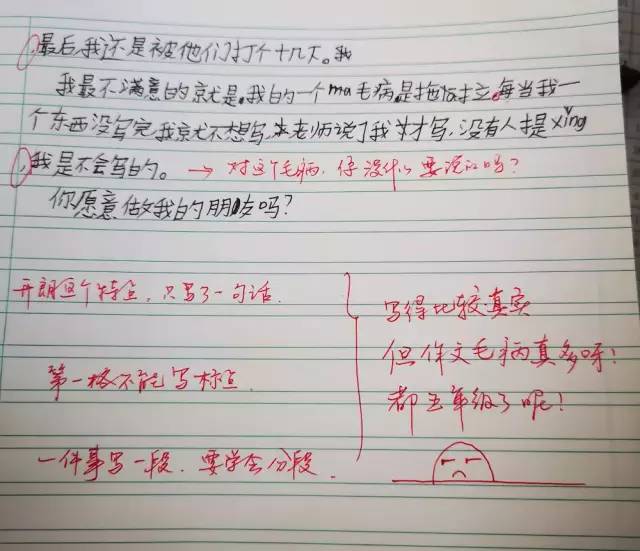 ,最后,我还是被他们打个十几下。我
我最不满意的就是,我的一个ma毛病是拖拉,每当我一
个东西没写完,我就不想写,老师说了我才写,没有人提xǐng
,我是不会写的。→对这个毛病,你没什么要说的吗?
你愿意做我的朋友吗?
开朗这个特点,只写了一句话.
第一格不能写标点.
一件事写一段.要学会分段.
写得比较真实
但作文毛病真多呀!
都五年级了呢!